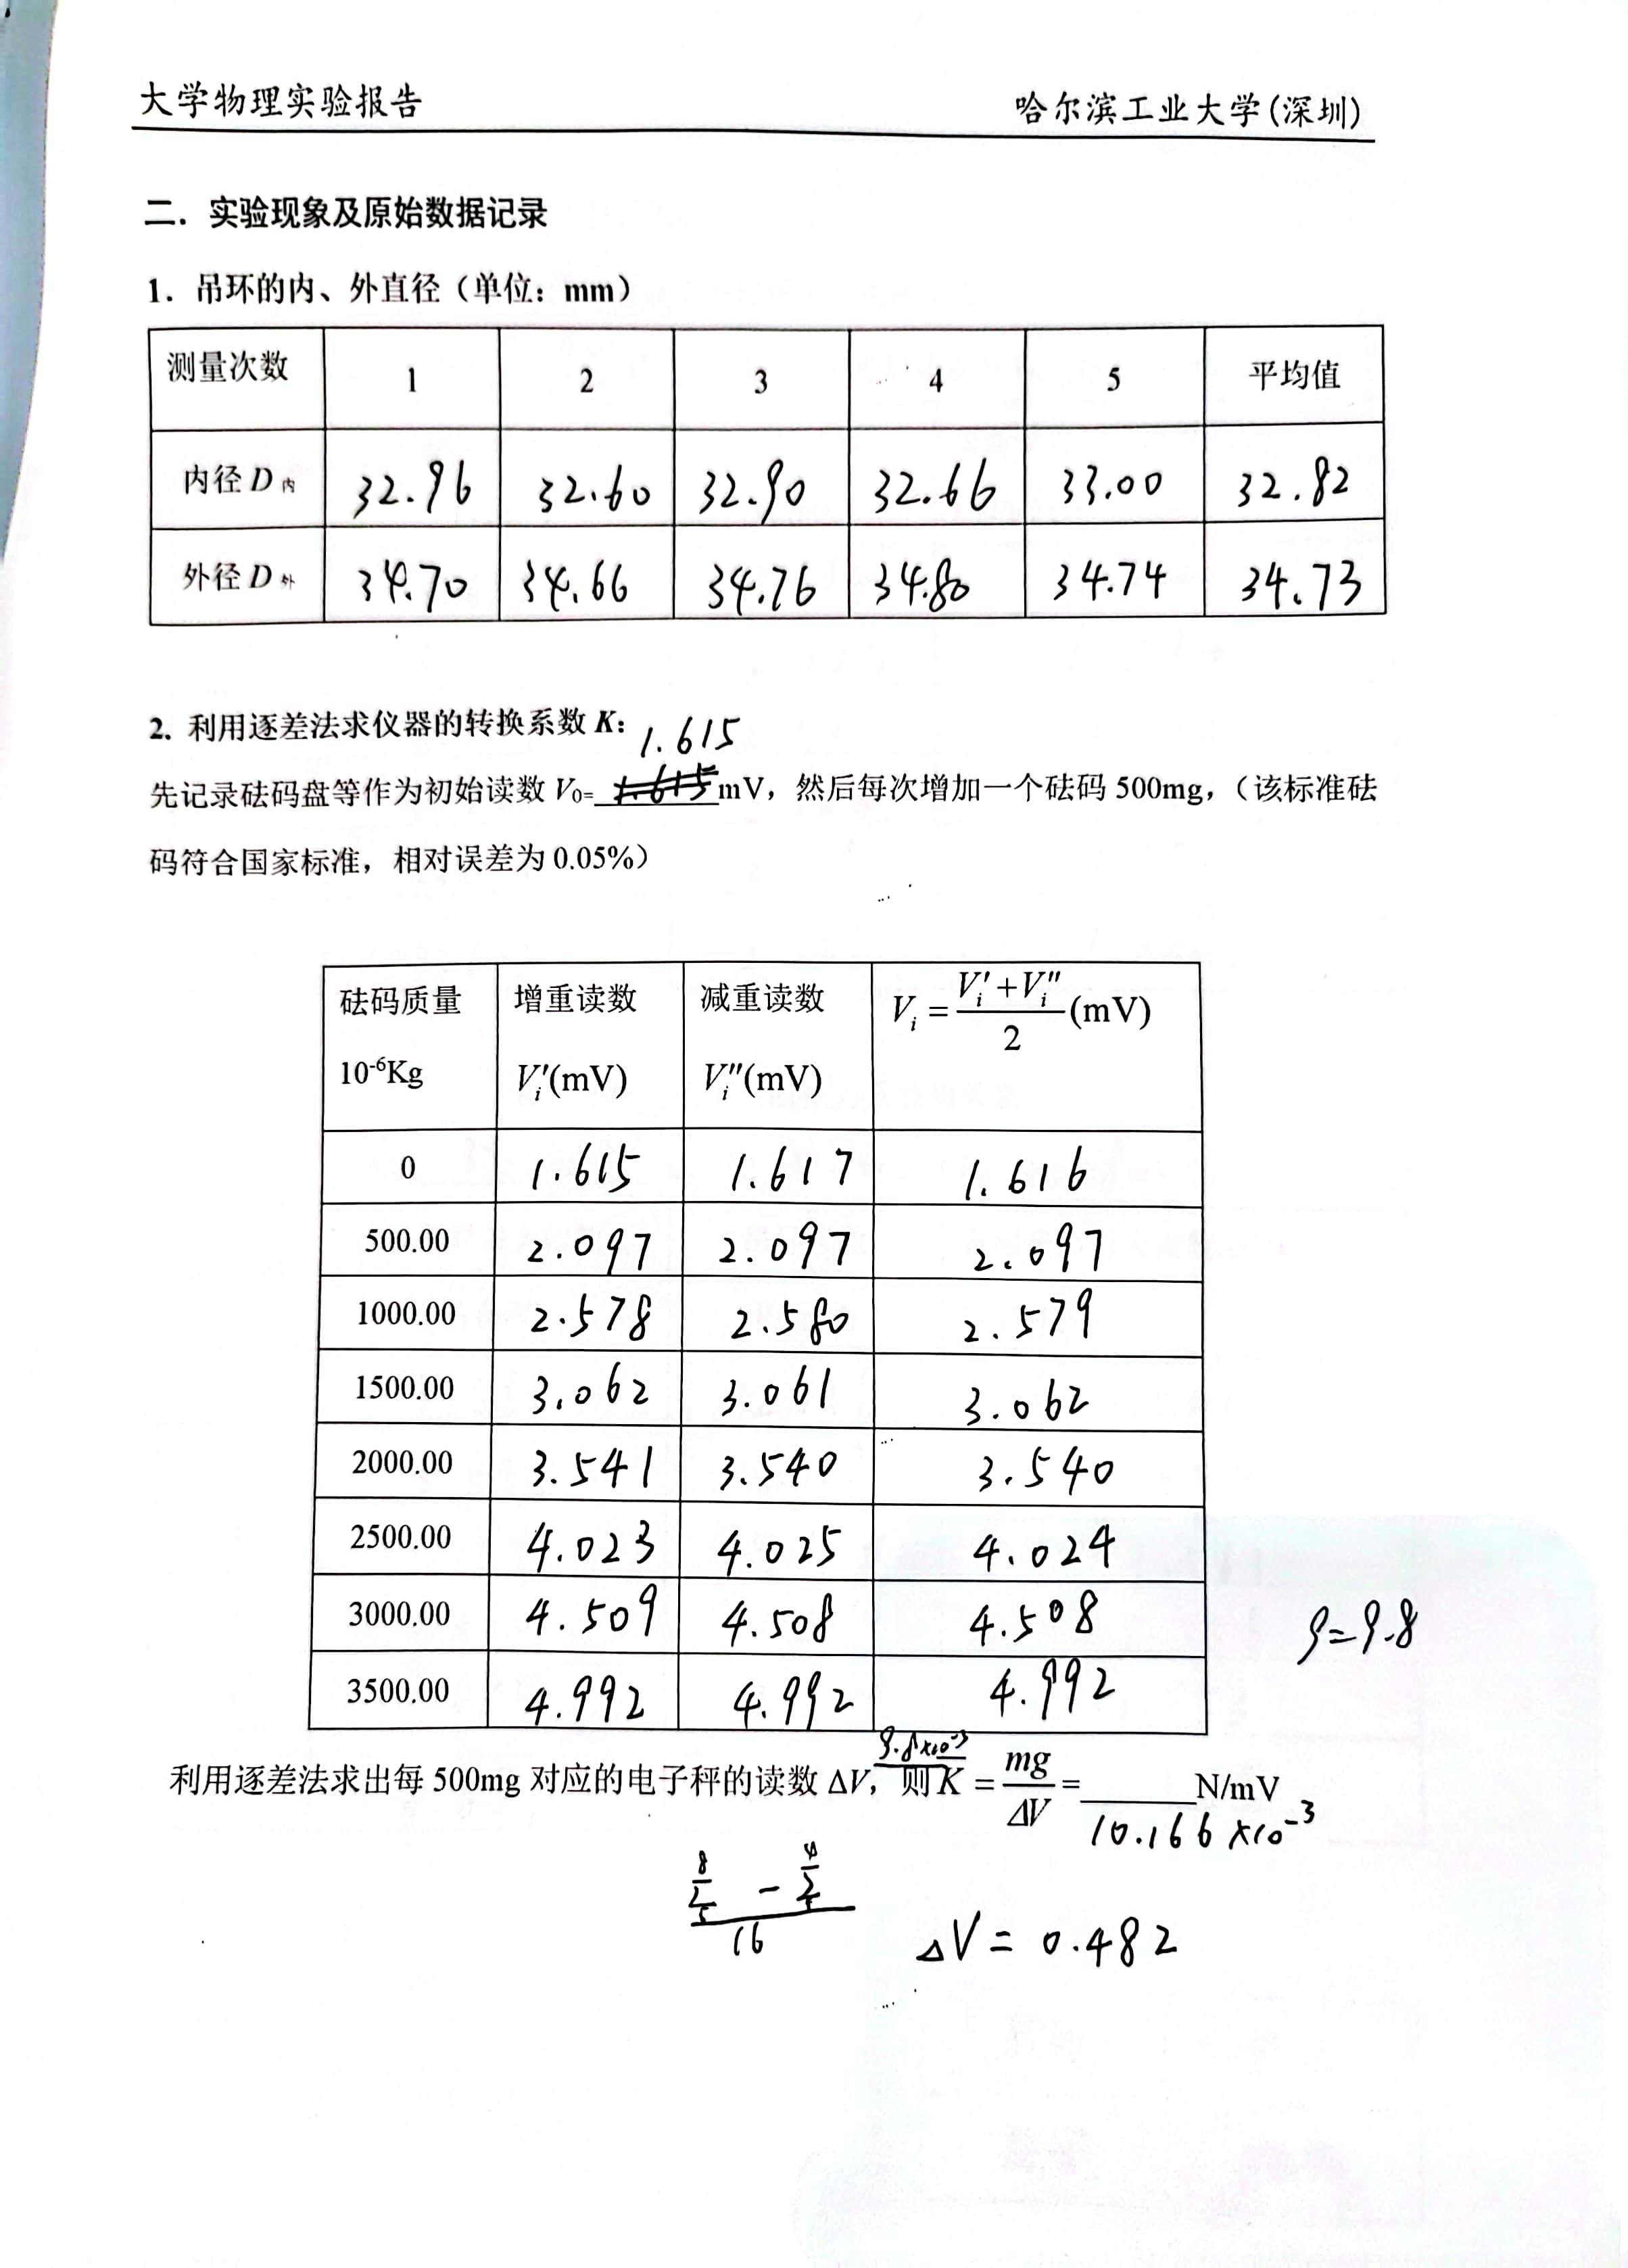 大学物理实验报告 哈尔滨工业大学(深圳)
二．实验现象及原始数据记录
1．吊环的内、外直径（单位：mm）
测量次数 1 2 3 4 5 平均值
内径 D内 32.96 32.60 32.90 32.66 33.00 32.82
外径 D外 34.70 34.66 34.76 34.80 34.74 34.73
2. 利用逐差法求仪器的转换系数 K：
1.615
先记录砝码盘等作为初始读数 V0= 1.615 mV，然后每次增加一个砝码 500mg，（该标准砝
码符合国家标准，相对误差为 0.05%）
砝码质量 10-6Kg 增重读数 Vi′(mV) 减重读数 Vi″(mV) Vi = (Vi′+Vi″)/2 (mV)
0 1.615 1.617 1.616
500.00 2.097 2.097 2.097
1000.00 2.578 2.580 2.579
1500.00 3.062 3.061 3.062
2000.00 3.541 3.540 3.540
2500.00 4.023 4.025 4.024
3000.00 4.509 4.508 4.508
g=9.8
3500.00 4.992 4.992 4.992
9.8×10-3
利用逐差法求出每 500mg 对应的电子秤的读数 ΔV，则 K = mg/ΔV = ______N/mV
10.166×10-3
16
ΔV = 0.482